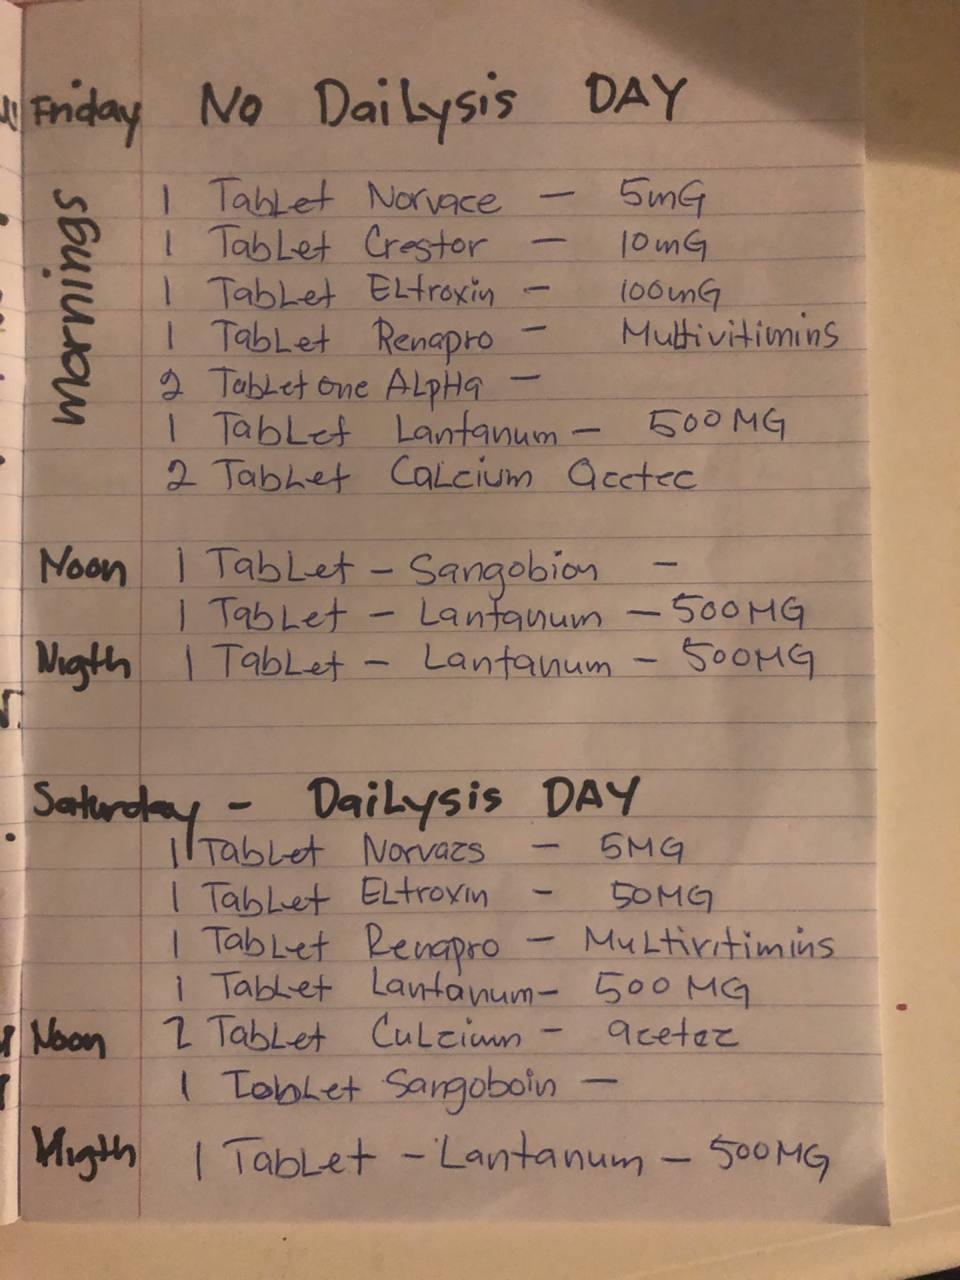 Friday No Dailysis DAY
Mornings
1 Tablet Norvace - 5mG
1 Tablet Crestor - 10mG
1 Tablet Eltroxin - 100mG
1 Tablet Renapro - Multivitimins
2 Tablet one ALpHa -
1 Tablet Lantanum - 500MG
2 Tablet Calcium acetec
Noon 1 Tablet - Sangobion -
1 Tablet - Lantanum - 500MG
Nigth 1 Tablet - Lantanum - 500MG
Saturday - Dailysis DAY
1 Tablet Norvacs - 5MG
1 Tablet Eltroxin - 50MG
1 Tablet Renapro - Multivitimins
1 Tablet Lantanum - 500MG
Noon 2 Tablet Culcium - acetec
1 Tablet Sangoboin -
Nigth 1 Tablet - Lantanum - 500MG